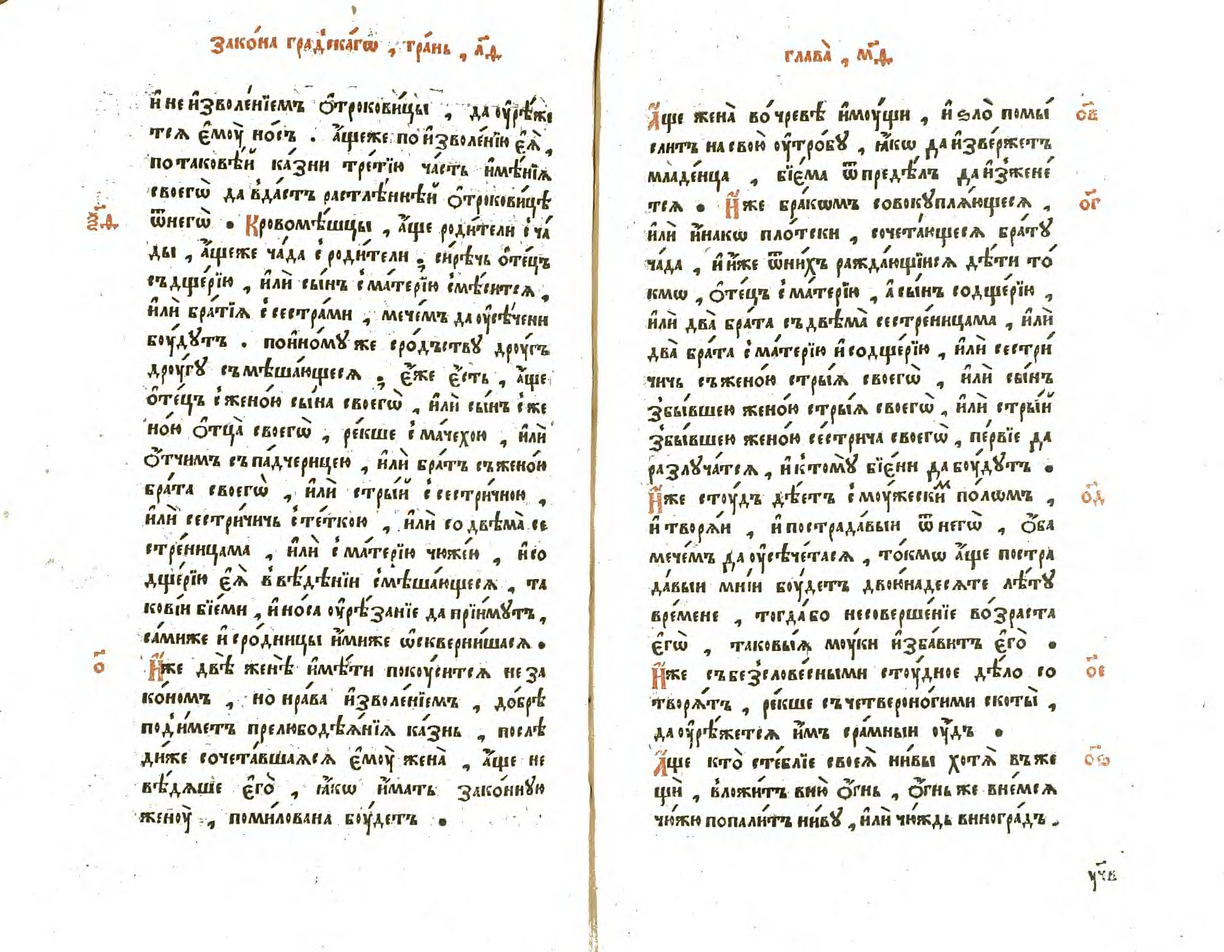 Зако́на гра́дскагѡ , гра́нь , л҃ѳ
и҆ не и҆зволе́нїемъ ѻ҆трокови́цы , да ᲂу҆рѣ́же
тсѧ є҆моу̀ но́съ . а҆́щеже по и҆зволе́нїю є҆ѧ̀ ,
по таковѣ́й ка́зни тре́тїю ча́сть и҆мѣ́нїѧ
своегѡ̀ да вда́стъ растлѣ́ннѣй ѻ҆трокови́цѣ
ѿ негѡ̀ . Кровомѣ́шцы , а҆́ще роди́тели с ча́
ды , а҆́щеже ча́да с роди́тели , си́рѣчь ѻ҆те́цъ
съ дще́рїю , и҆лѝ сы́нъ с ма́терїю смѣ́ситсѧ ,
и҆лѝ бра́тїѧ с сестра́ми , мече́мъ да ᲂу҆сѣ́чени
боу́дутъ . по и҆но́му же сро́дъству дроу́гъ
дроу́гу съмѣша́ющесѧ , є҆́же є҆́сть , а҆́ще
ѻ҆те́цъ с жено́ю сы́на своегѡ̀ , и҆лѝ сы́нъ с же
но́ю ѻ҆тца̀ своегѡ̀ , ре́кше с ма́чехою , и҆лѝ
ѻ҆́тчимъ съ па́дчерицею , и҆лѝ бра́тъ съ жено́ю
бра́та своегѡ̀ , и҆лѝ стры́й с сестри́чною ,
и҆лѝ сестри́чичь с те́ткою , и҆лѝ со двѣма̀ се
стре́ницама , и҆лѝ с ма́терїю чюже́ю , и҆ со
дще́рїю є҆ѧ̀ в вѣ́дѣнїи смѣша́ющесѧ , та
кові́и бїе́ми , и҆ но́са ᲂу҆рѣ́занїе да прїи́мутъ ,
са́миже и҆ сро́дницы и҆́миже ѡ҆скверни́шасѧ .
о҃
И҆́же двѣ̀ женѣ̀ и҆мѣ́ти покоу́ситсѧ не за
ко́номъ , но нра́ва и҆зволе́нїемъ , до́брѣ
под̾и́метъ прелюбодѣѧ́нїѧ ка́знь , послѣ
ди́же сочета́вшаѧсѧ є҆моу̀ жена̀ , а҆́ще не
вѣ́дѧше є҆го̀ , ꙗ҆́кѡ и҆́мать зако́нную
женоу̀ , поми́лована боу́детъ .
глава̀ , м҃ѳ
А҆́ще жена̀ во чре́вѣ и҆моу́щи , и҆ ѕло̀ помы́
слитъ на свою̀ ᲂу҆тро́бу , ꙗ҆́кѡ да и҆зве́ржетъ
младе́нца , бїе́ма ѿ предѣ́лъ да и҆зжене
тсѧ . И҆́же бра́комъ совокуплѧ́ющесѧ ,
и҆лѝ и҆на́кѡ пло́тски , сочета́ющесѧ бра́ту
ча́да , и҆ и҆́же ѿ ни́хъ ражда́ющїисѧ дѣ́ти то́
кмѡ , ѻ҆те́цъ с ма́терїю , а҆ сы́нъ со дще́рїю ,
и҆лѝ два̀ бра́та съ двѣма̀ сестре́ницама , и҆лѝ
два̀ бра́та с ма́терїю и҆ со дще́рїю , и҆лѝ сестри́
чичь съ жено́ю стры́ѧ своегѡ̀ , и҆лѝ сы́нъ
з бы́вшею жено́ю стры́ѧ своегѡ̀ , и҆лѝ стры́й
з бы́вшею жено́ю се́стрича своегѡ̀ , пе́рвїе да
разлуча́тсѧ , и҆ к тому̀ бїе́ни да боу́дутъ .
И҆́же стоу́дъ дѣ́етъ с моу́жеским по́ломъ ,
и҆ творѧ́и , и҆ пострада́выи ѿ негѡ̀ , ѻ҆́ба
мече́мъ да ᲂу҆сѣче́тасѧ , то́кмѡ а҆́ще постра
да́выи мні́и боу́детъ двоюна́десѧте лѣ́ту
вре́мене , тогда́ бо несоверше́нїе во́зраста
є҆гѡ̀ , таковы́ѧ моу́ки и҆зба́витъ є҆го̀ .
И҆́же съ безслове́сными стоу́дное дѣ́ло со
творѧ́тъ , ре́кше съ четвероно́гими скоты̀ ,
да ᲂу҆рѣ́жетсѧ и҆̀мъ сра́мныи ᲂу҆́дъ .
А҆́ще кто̀ сте́блїе своеѧ̀ ни́вы хотѧ̀ въже
щѝ , вложи́тъ в ню̀ ѻ҆́гнь , ѻ҆́гнь же вне́мсѧ
чю́жю попали́тъ ни́ву , и҆лѝ чю́ждь виногра́дъ .
о҃в
о҃г
о҃д
о҃е
о҃ѕ
учв